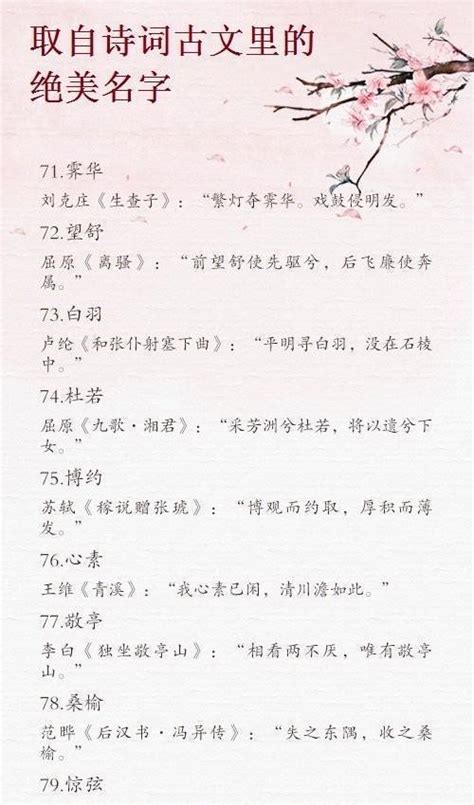 取自诗词古文里的
绝美名字
71.霁华
刘克庄《生查子》：“繁灯夺霁华。戏鼓侵明发。”
72.望舒
屈原《离骚》：“前望舒使先驱兮，后飞廉使奔
属。”
73.白羽
卢纶《和张仆射塞下曲》：“平明寻白羽，没在石棱
中。”
74.杜若
屈原《九歌·湘君》：“采芳洲兮杜若，将以遗兮下
女。”
75.博约
苏轼《稼说赠张琥》：“博观而约取，厚积而薄
发。”
76.心素
王维《青溪》：“我心素已闲，清川澹如此。”
77.敬亭
李白《独坐敬亭山》：“相看两不厌，唯有敬亭
山。”
78.桑榆
范晔《后汉书·冯异传》：“失之东隅，收之桑
榆。”
79.惊弦